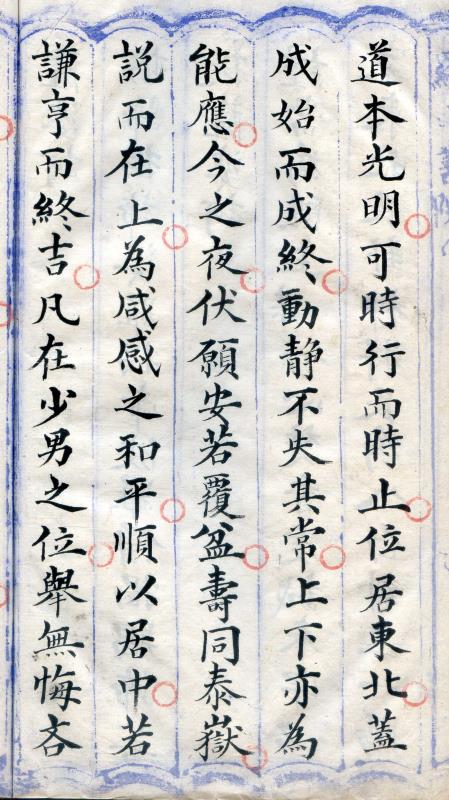 道本光明可時行而時止位居東北蓋
成始而成終動靜不失其常上下亦為
能應今之夜伏願安若覆盆壽同泰嶽
説而在上為咸感之和平順以居中若
謙亨而終吉凡在少男之位舉無悔吝